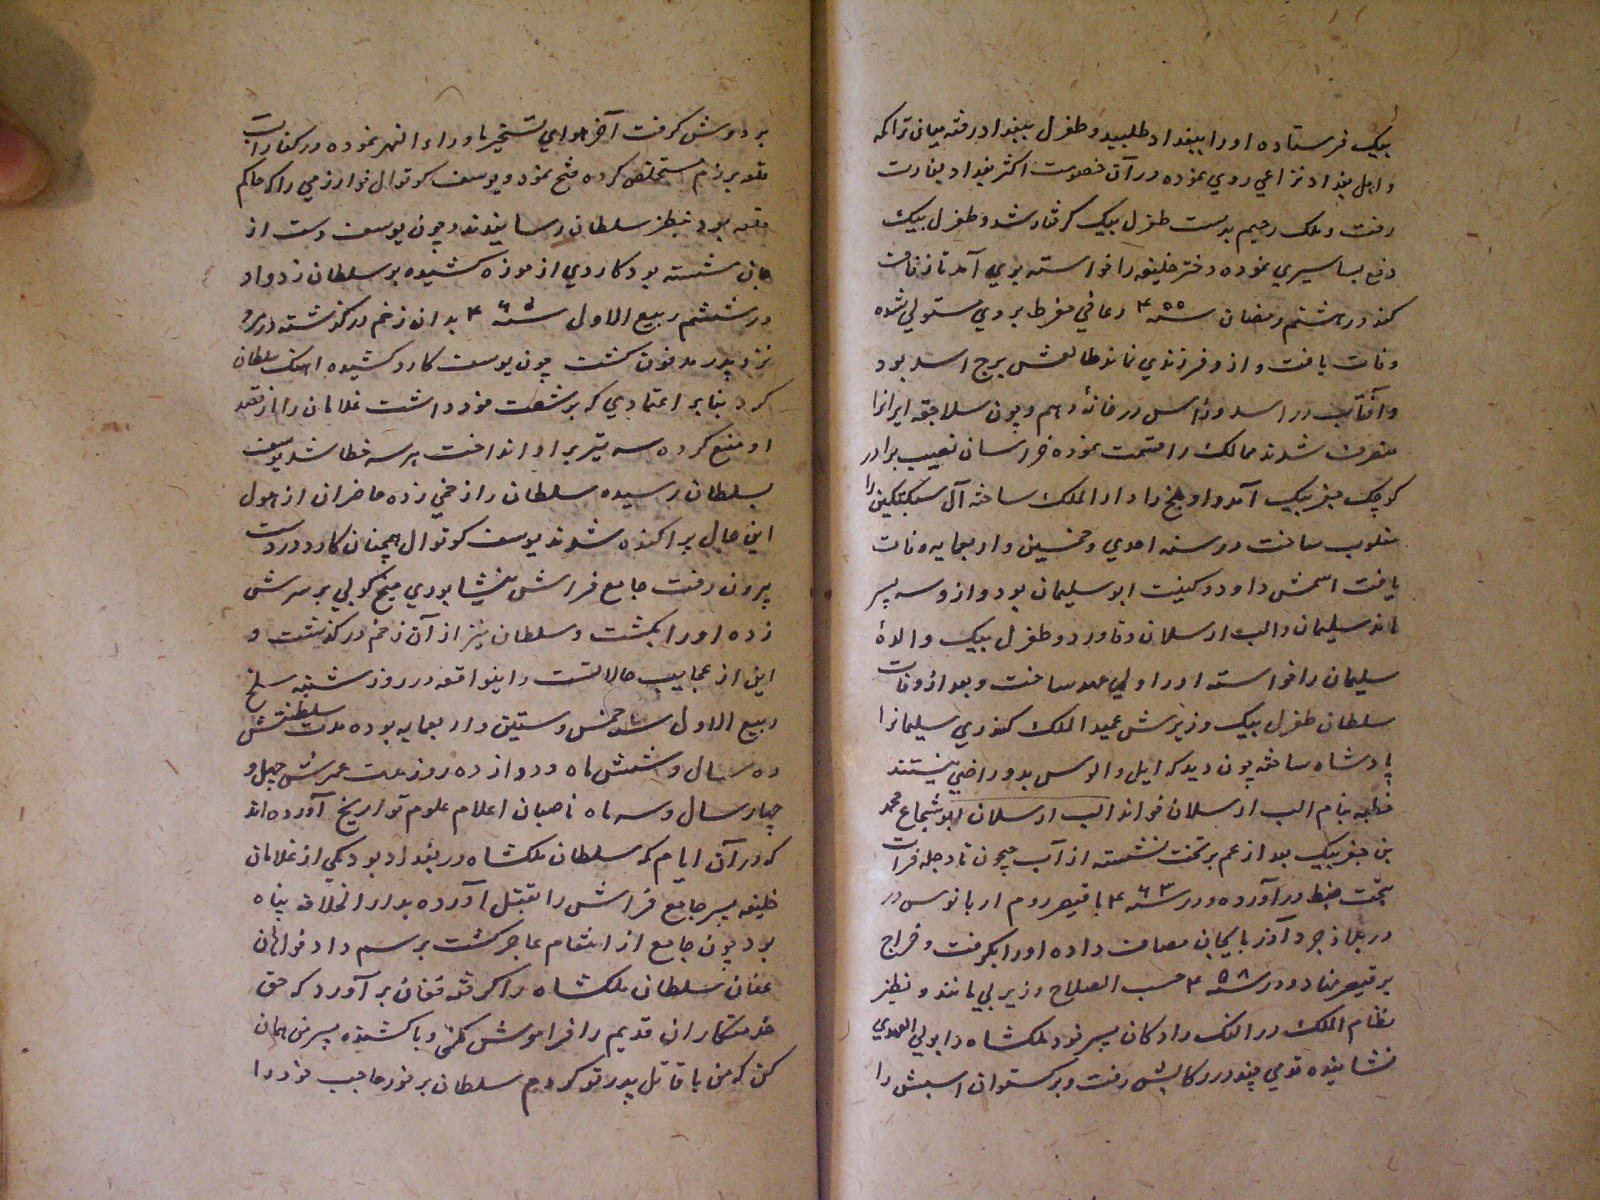 بیک فرستاده او را ببغداد طلبید و طغرل ببغداد رفته میان تراکمه
و اهل بغداد نزاعی روی نموده در آن خصومت اکثر بغداد بغارت
رفت و ملک رحیم بدست طغرل بیک گرفتار شد و طغرل بیک
دفع بساسیری نموده دختر خلیفه را خواسته بری آمد تا زفاف
کند در هشتم رمضان سنه ۴۵۵ رعافی مفرط بر وی مستولی شده
وفات یافت و ازو فرزندی نماند طالعش برج اسد بود
و آفتاب در اسد و در خانهٔ دهم و چون سلاجقه ایرانرا
متصرف شدند ممالک را قسمت نموده خراسان نصیب برادر
کوچک جغر بیک آمد و او بلخ را دار الملک ساخته آل سبکتکین را
مغلوب ساخت در سنه احدی و خمسین و اربعمایه وفات
یافت اسمش داود و کنیت ابو سلیمان بود و ازو سه پسر
ماند سلیمان و الب ارسلان و قاورد و طغرل بیک والدهٔ
سلیمان را خواسته او را ولی عهد ساخت و بعد از وفات
سلطان طغرل بیک وزیرش عمید الملک کندری سلیمانرا
پادشاه ساخته چون دید که ایل و الوس بدو راضی نیستند
خطبه بنام الب ارسلان خواند الب ارسلان ابو شجاع محمد
بن جغر بیک بعد از عم بر تخت نشسته از آب جیحون تا دجله فرات
بتحت ضبط در آورده و در سنه ۴۶۳ با قیصر روم ارمانوس در
در ملاذجرد آذربایجان مصاف داده او را بگرفت و خراج
بر قیصر نهاد و در سنه ۴۵۸ حسب الصلاح وزیر بی مانند و نظیر
نظام الملک در النک رادکان پسر خود ملکشاه را بولی العهدی
نشانیده قدمی چند در رکابش رفت و برکستوان اسبش را
بر دوش گرفت آخر هوای تسخیر ماوراء النهر نموده در کنار آب
قلعه برزم مستخلص کرده فتح نمود و یوسف کوتوال خوارزمی را که حاکم
قلعه بود بنظر سلطان رسانیدند و چون یوسف دست از
جان شسته بود کاردی از موزه کشیده بر سلطان زد و او
در ششم ربیع الاول سنه ۴۶۵ بدان زخم در گذشته در مرو
نزد پدر مدفون گشت چون یوسف کارد کشیده آهنگ سلطان
کرد بنا بر اعتمادی که بر شصت خود داشت غلامان را از قصد
او منع کرده سه تیر بر او انداخت هر سه خطا شد یوسف
بسلطان رسیده سلطان را زخمی زده حاضران از هول
این حال پراکنده شدند یوسف کوتوال همچنان کارد در دست
بیرون رفت جامع فراش نیشابوری میخ کوبی بر سرش
زده او را بکشت و سلطان نیز از آن زخم در گذشت و
این از عجایب حالاتست و اینواقعه در روز شنبه سلخ
ربیع الاول سنه خمس و ستین و اربعمایه بوده مدت سلطنتش
ده سال و شش ماه و دوازده روز مدت عمرش چهل و
چهار سال و سه ماه ناصبان اعلام علوم تواریخ آورده اند
که در آن ایام که سلطان ملکشاه در بغداد بود یکی از غلامان
خلیفه پسر جامع فراش را بقتل آورده بدار الخلافه پناه
برد چون جامع از انتقام عاجز گشت برسم داد خواهان
عنان سلطان ملکشاه را گرفته فغان بر آورد که حق
خدمتکاران قدیم را فراموش مکن و با کشنده پسر من همان
کن که من با قاتل پدر تو کردم سلطان بر فور حاجب خود را